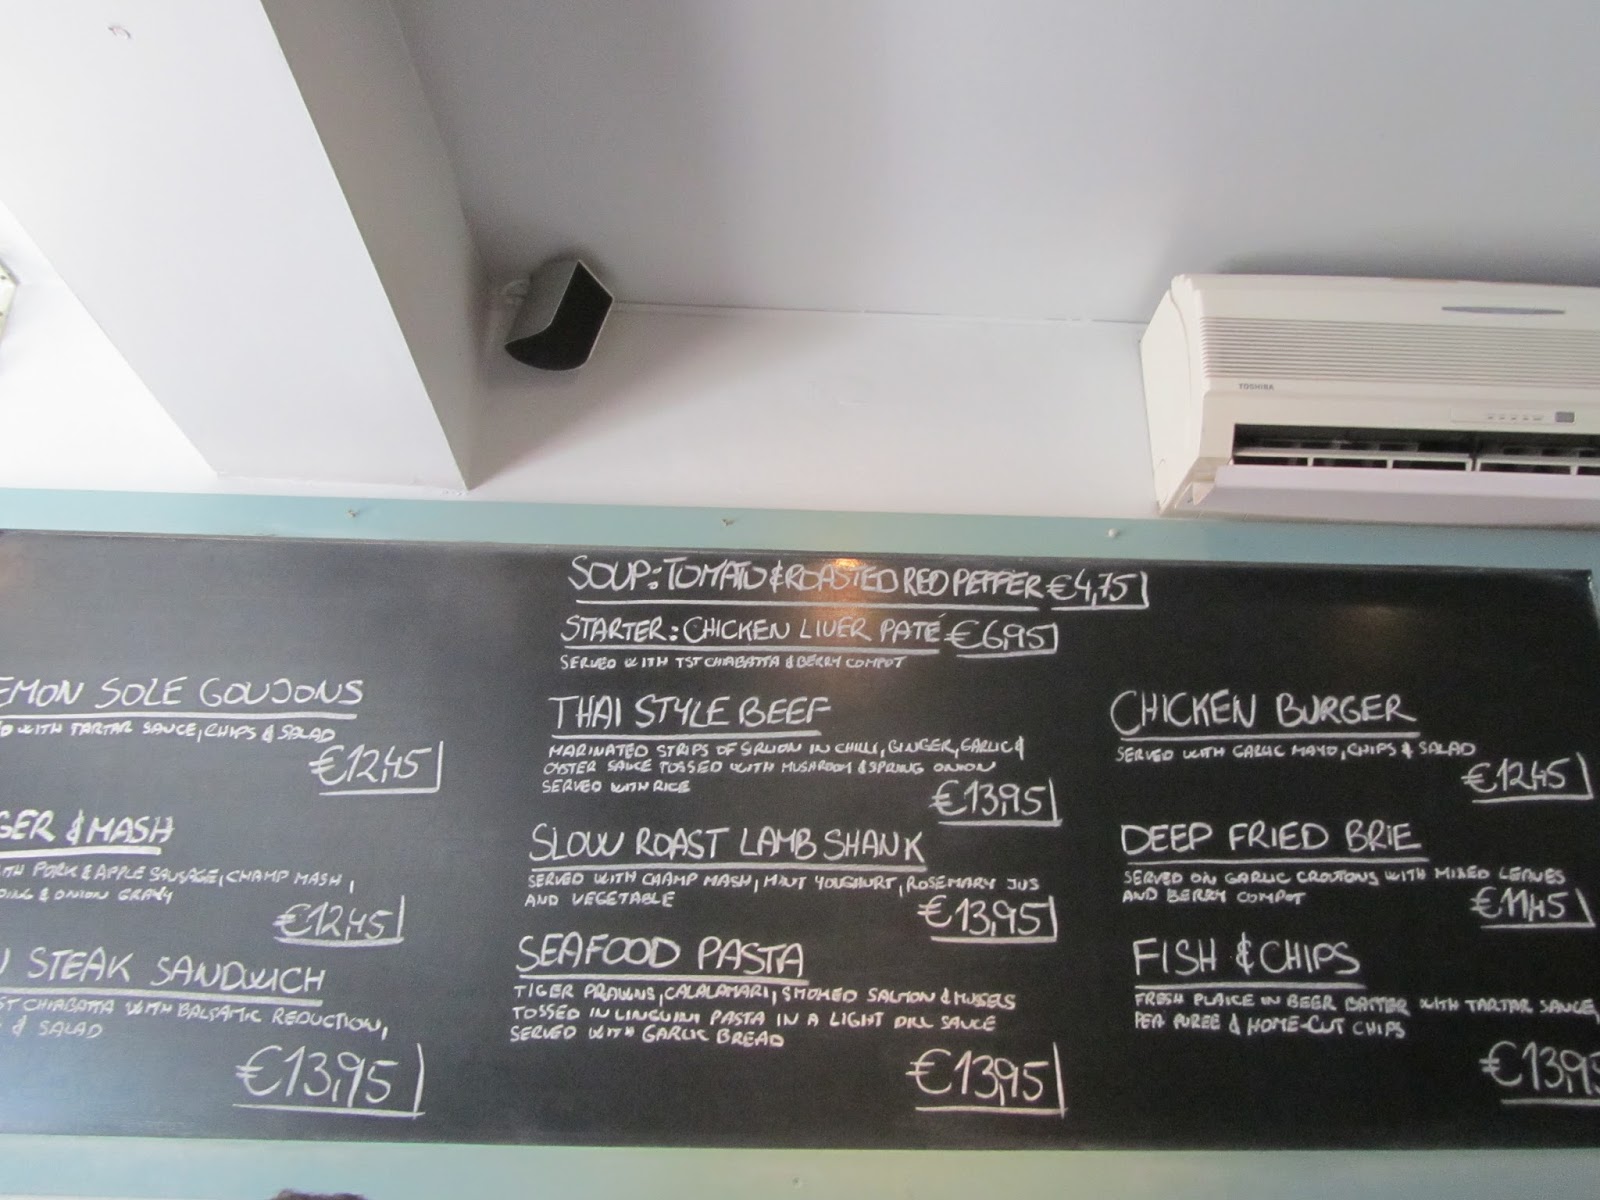 TOSHIBA
SOUP: TOMATO & ROASTED RED PEPPER €4,75
STARTER: CHICKEN LIVER PATÉ €6,95
SERVED WITH TST CHIABATTA & BERRY COMPOT
EMON SOLE GOUJONS
D WITH TARTAR SAUCE, CHIPS & SALAD
€12,45
GER & MASH
ITH PORK & APPLE SAUSAGE, CHAMP MASH,
DING & ONION GRAVY
€12,45
STEAK SANDWICH
ST CHIABATTA WITH BALSAMIC REDUCTION,
& SALAD
€13,95
THAI STYLE BEEF
MARINATED STRIPS OF SIRLION IN CHILLI, GINGER, GARLIC &
OYSTER SAUCE TOSSED WITH MUSHROOM & SPRING ONION
SERVED WITH RICE
€13,95
SLOW ROAST LAMB SHANK
SERVED WITH CHAMP MASH, MINT YOUGHURT, ROSEMARY JUS
AND VEGETABLE
€13,95
SEAFOOD PASTA
TIGER PRAWNS, CALALAMARI, SMOKED SALMON & MUSSELS
TOSSED IN LINGUINI PASTA IN A LIGHT DILL SAUCE
SERVED WITH GARLIC BREAD
€13,95
CHICKEN BURGER
SERVED WITH GARLIC MAYO, CHIPS & SALAD
€12,45
DEEP FRIED BRIE
SERVED ON GARLIC CROUTONS WITH MIXED LEAVES
AND BERRY COMPOT
€11,45
FISH & CHIPS
FRESH PLAICE IN BEER BATTER WITH TARTAR SAUCE,
PEA PUREE & HOME-CUT CHIPS
€13,95